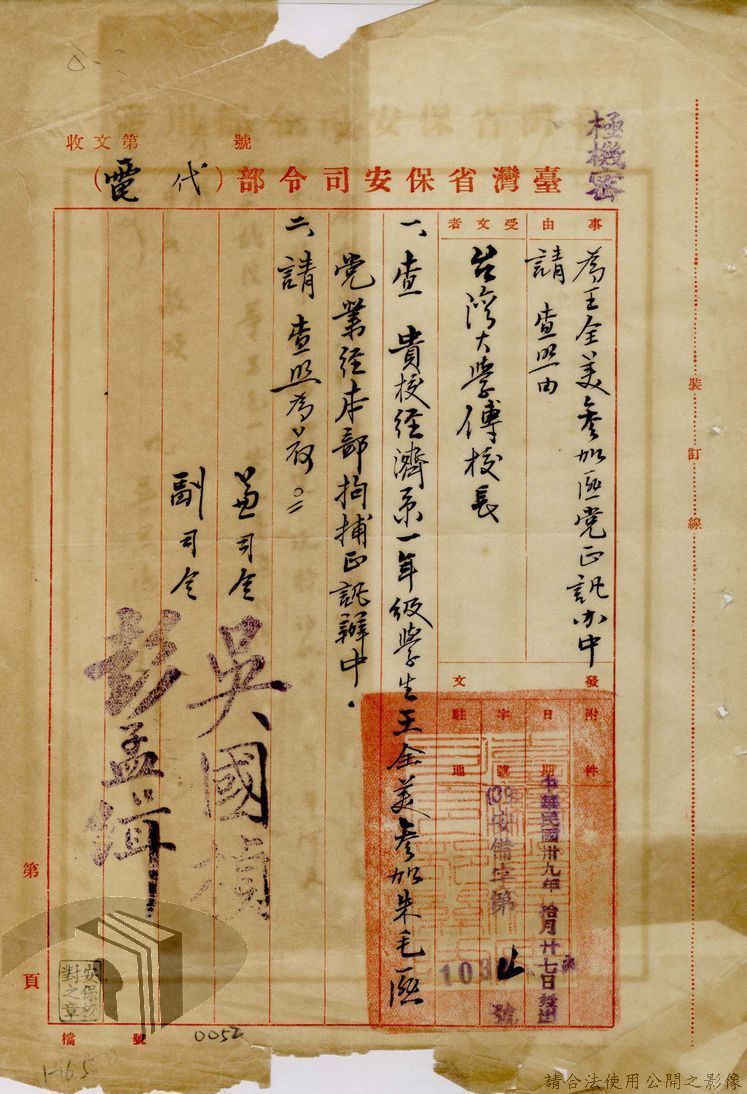 極機密
收文第　　號
臺灣省保安司令部（代電）
事由
為王全美參加匪党正訊办中
請查照由
受文者
台湾大學傅校長
附件
發文
日期
中華民國卅九年拾月廿七日發出
字號
(39)安備字第103号
駐地
一、查　貴校经濟系一年级學生王全美參加朱毛匪
党業经本部拘捕正訊辦中.
二、請查照為荷。
兼司令
吳國楨
副司令
彭孟緝
裝訂線
第　頁
安保校對之章
檔號
0052
請合法使用公開之影像